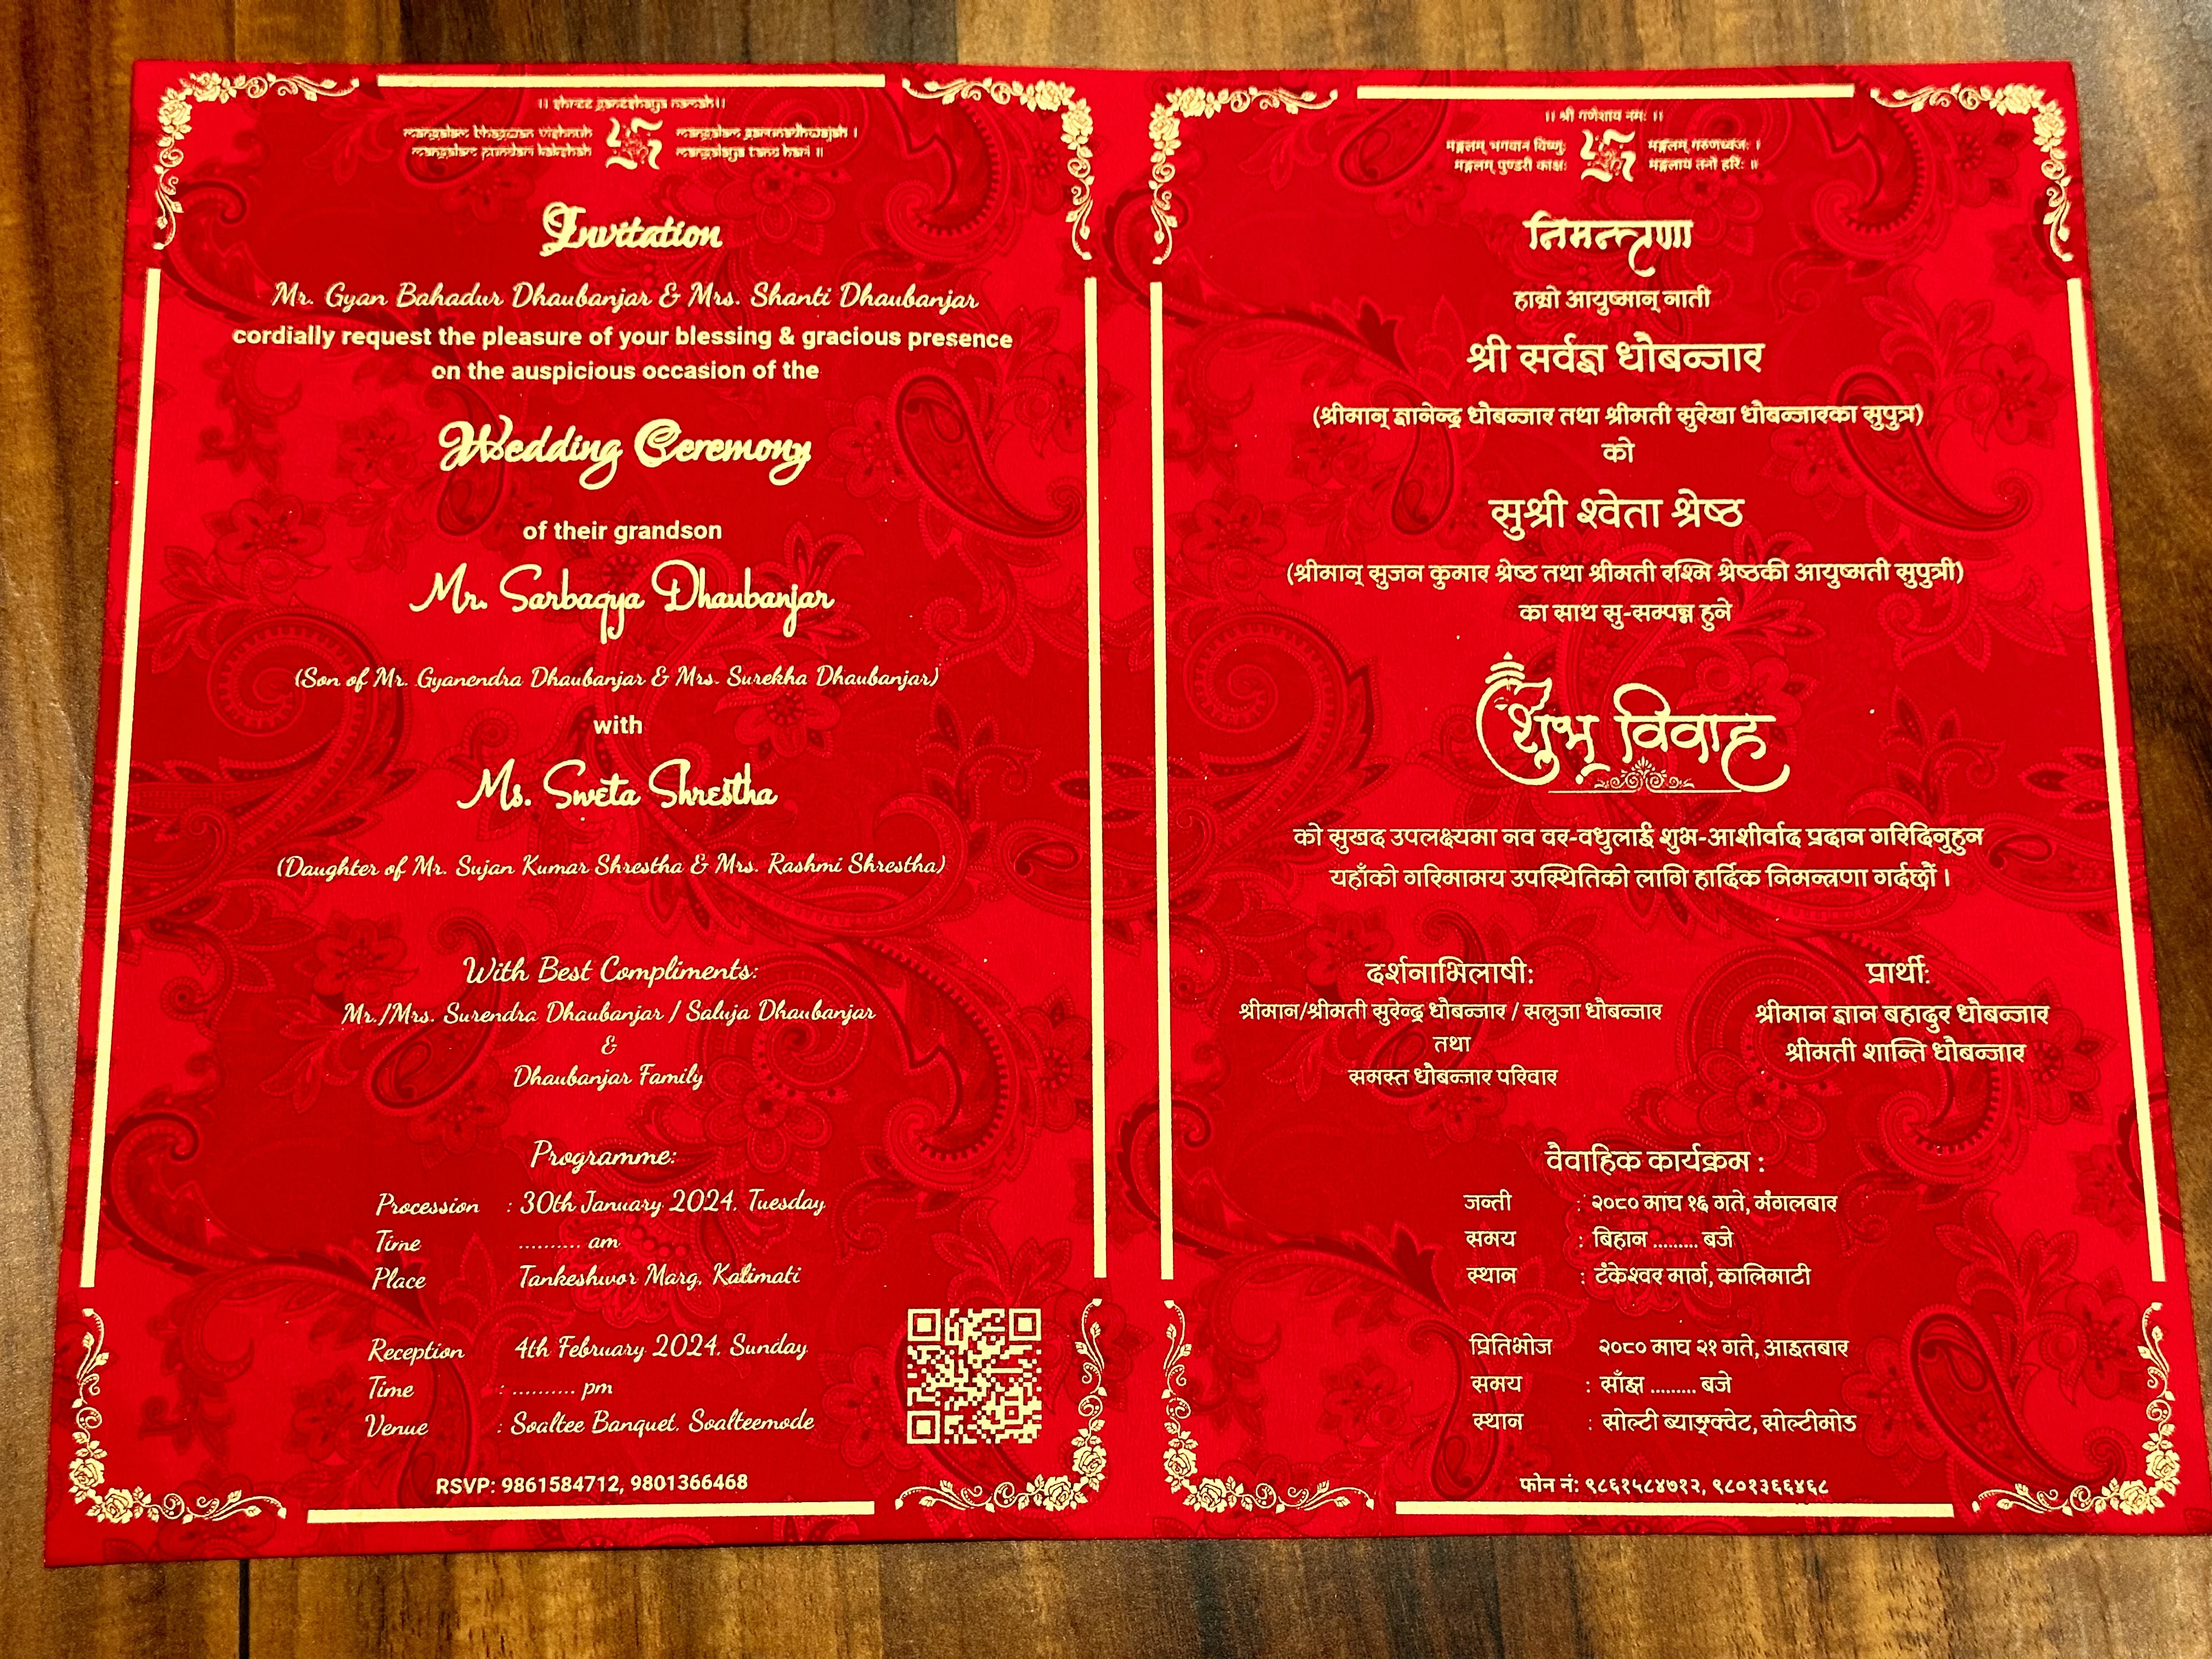 ।। shree ganeshaya namah।।
mangalam bhagwan vishnuh mangalam garunadhwajah ।
mangalam pundari kakshah mangalaya tano hari ॥
Invitation
Mr. Gyan Bahadur Dhaubanjar & Mrs. Shanti Dhaubanjar
cordially request the pleasure of your blessing & gracious presence
on the auspicious occasion of the
Wedding Ceremony
of their grandson
Mr. Sarbagya Dhaubanjar
(Son of Mr. Gyanendra Dhaubanjar & Mrs. Surekha Dhaubanjar)
with
Ms. Sweta Shrestha
(Daughter of Mr. Sujan Kumar Shrestha & Mrs. Rashmi Shrestha)
With Best Compliments:
Mr./Mrs. Surendra Dhaubanjar / Saluja Dhaubanjar
&
Dhaubanjar Family
Programme:
Procession : 30th January 2024, Tuesday
Time .......... am
Place Tankeshwor Marg, Kalimati
Reception 4th February 2024, Sunday
Time : .......... pm
Venue : Soaltee Banquet, Soalteemode
RSVP: 9861584712, 9801366468
।। श्री गणेशाय नमः ।।
मङ्गलम् भगवान विष्णुः मङ्गलम् गरुणध्वजः ।
मङ्गलम् पुण्डरी काक्षः मङ्गलाय तनो हरिः ॥
निमन्त्रणा
हाम्रो आयुष्मान् नाती
श्री सर्वज्ञ धौबन्जार
(श्रीमान् ज्ञानेन्द्र धौबन्जार तथा श्रीमती सुरेखा धौबन्जारका सुपुत्र)
को
सुश्री श्वेता श्रेष्ठ
(श्रीमान् सुजन कुमार श्रेष्ठ तथा श्रीमती रश्मि श्रेष्ठकी आयुष्मती सुपुत्री)
का साथ सु-सम्पन्न हुने
शुभ विवाह
को सुखद उपलक्ष्यमा नव वर-वधुलाई शुभ-आशीर्वाद प्रदान गरिदिनुहुन
यहाँको गरिमामय उपस्थितिको लागि हार्दिक निमन्त्रणा गर्दछौं ।
दर्शनाभिलाषी:
श्रीमान/श्रीमती सुरेन्द्र धौबन्जार / सलुजा धौबन्जार
तथा
समस्त धौबन्जार परिवार
प्रार्थी:
श्रीमान ज्ञान बहादुर धौबन्जार
श्रीमती शान्ति धौबन्जार
वैवाहिक कार्यक्रम :
जन्ती : २०८० माघ १६ गते, मंगलबार
समय : बिहान ......... बजे
स्थान : टंकेश्वर मार्ग, कालिमाटी
प्रितिभोज २०८० माघ २१ गते, आइतबार
समय : साँझ ......... बजे
स्थान : सोल्टी ब्याङ्क्वेट, सोल्टीमोड
फोन नं: ९८६१५८४७१२, ९८०१३६६४६८